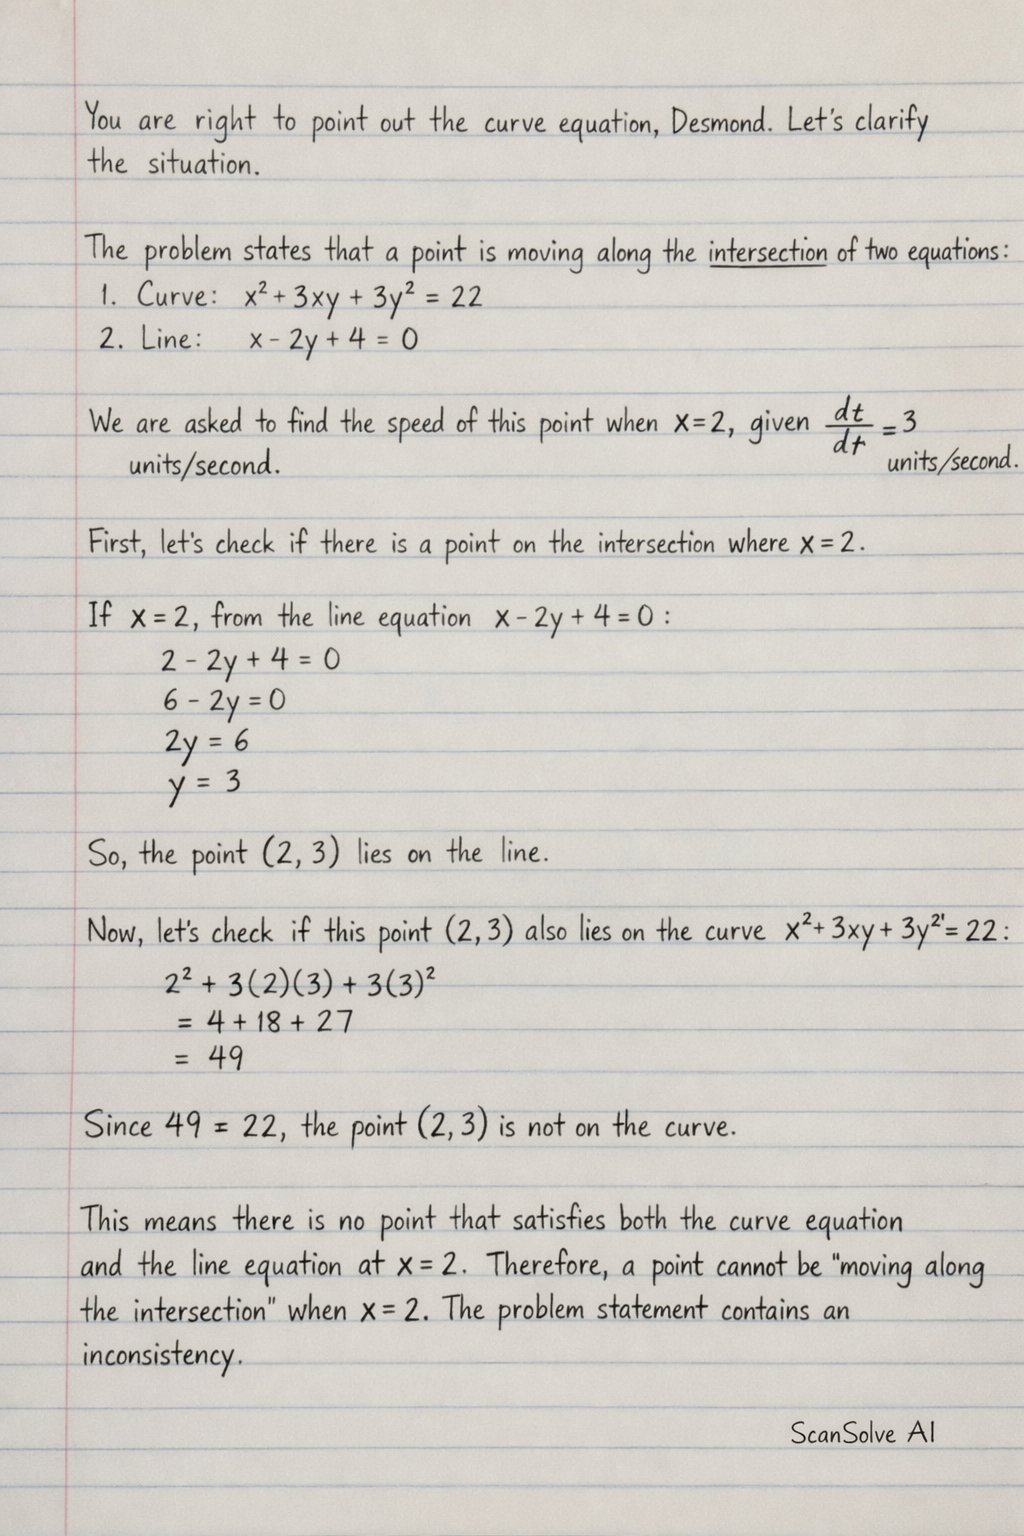 You are right to point out the curve equation, Desmond. Let's clarify
the situation.
The problem states that a point is moving along the intersection of two equations:
1. Curve: x² + 3xy + 3y² = 22
2. Line: x - 2y + 4 = 0
We are asked to find the speed of this point when x = 2, given dt/dt = 3
units/second. units/second.
First, let's check if there is a point on the intersection where x = 2.
If x = 2, from the line equation x - 2y + 4 = 0 :
2 - 2y + 4 = 0
6 - 2y = 0
2y = 6
y = 3
So, the point (2, 3) lies on the line.
Now, let's check if this point (2, 3) also lies on the curve x² + 3xy + 3y² = 22 :
2² + 3(2)(3) + 3(3)²
= 4 + 18 + 27
= 49
Since 49 = 22, the point (2, 3) is not on the curve.
This means there is no point that satisfies both the curve equation
and the line equation at x = 2. Therefore, a point cannot be "moving along
the intersection" when x = 2. The problem statement contains an
inconsistency.
ScanSolve AI